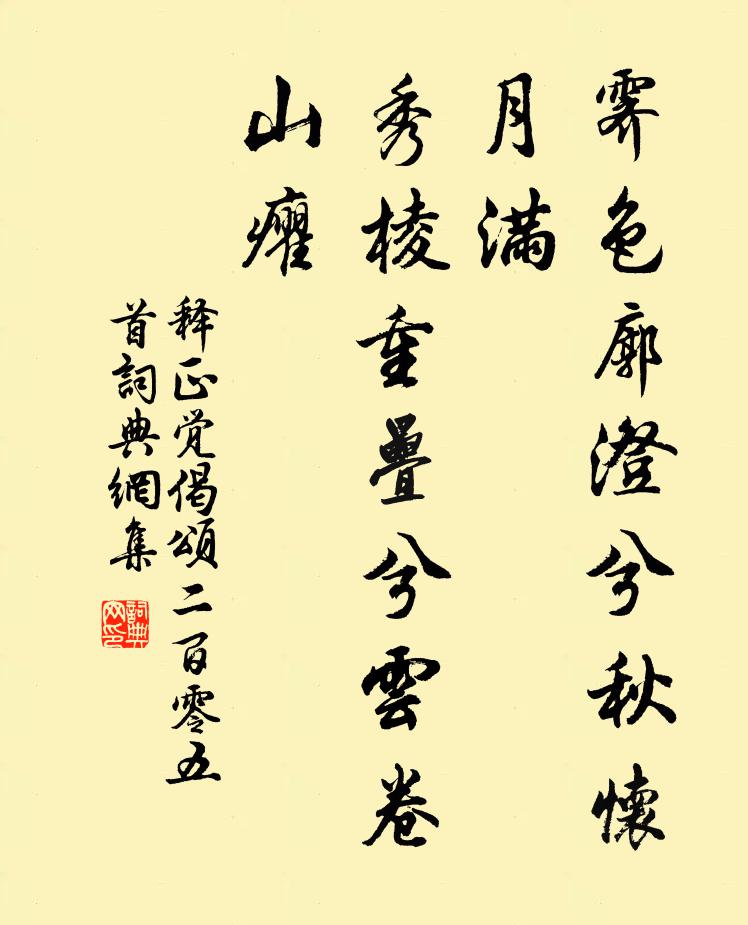 霽色廓澄兮秋懷
月滿
秀棱重疊兮雲卷
山癯
释正觉偈頌二百零五
首詞典網集
詞典
网印